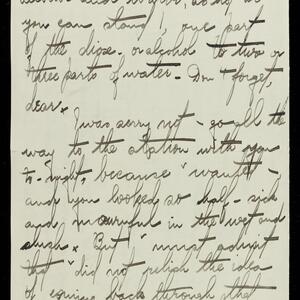 you can stand, one part
of the diox. or alcohol to two or
three parts of water. Don't forget,
dear.
I was sorry not to go all the
way to the station with you
to-night, because I wanted to,
and you looked so half-sick
and mournful in the wet and
slush. But I must admit
that I did not relish the idea
of coming back through that